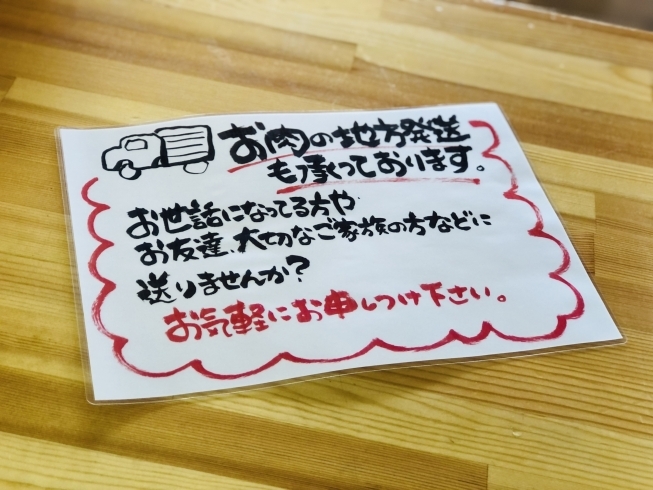 お肉の地方発送
も承っております。
お世話になってる方や
お友達、大切なご家族の方などに
送りませんか?
お気軽にお申しつけ下さい。